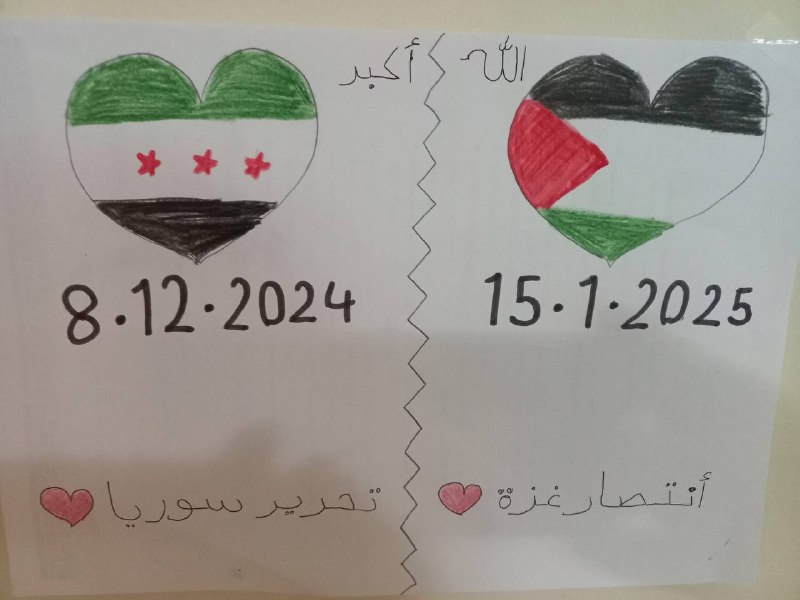 الله أكبر
15.1.2025
8.12.2024
أنتصار غزة
تحرير سوريا